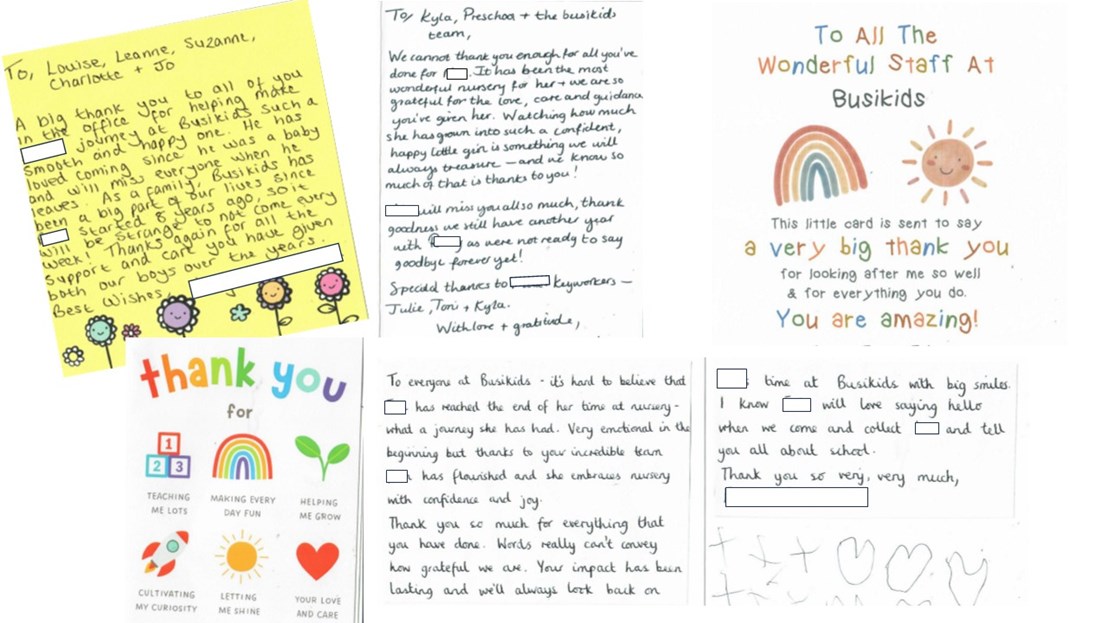 To, Louise, Leanne, Suzanne,
Charlotte + Jo
A big thank you to all of you
in the office for helping make
journey at Busikids such a
smooth and happy one. He has
loved coming since he was a baby
and will miss everyone when he
leaves. As a family, Busikids has
been a big part of our lives since
started 8 years ago, so it
will be strange to not come every
week! Thanks again for all the
support and care you have given
both our boys over the years.
Best Wishes,
To/ Kyla, Preschool + the busikids
team,
We cannot thank you enough for all you've
done for . It has been the most
wonderful nursery for her + we are so
grateful for the love, care and guidance
you've given her. Watching how much
she has grown into such a confident,
happy little girl is something we will
always treasure – and we know so
much of that is thanks to you!
will miss you all so much, thank
goodness we still have another year
with as were not ready to say
goodbye forever yet!
Special thanks to keyworkers –
Julie, Toni + Kyla.
With love + gratitude,
To All The
Wonderful Staff At
Busikids
This little card is sent to say
a very big thank you
for looking after me so well
& for everything you do.
You are amazing!
thank you
for
1
2 3
TEACHING
ME LOTS
MAKING EVERY
DAY FUN
HELPING
ME GROW
CULTIVATING
MY CURIOSITY
LETTING
ME SHINE
YOUR LOVE
AND CARE
To everyone at Busikids - it's hard to believe that
has reached the end of her time at nursery -
what a journey she has had. Very emotional in the
beginning but thanks to your incredible team
has flourished and she embraces nursery
with confidence and joy.
Thank you so much for everything that
you have done. Words really can't convey
how grateful we are. Your impact has been
lasting and we'll always look back on
time at Busikids with big smiles.
I know will love saying hello
when we come and collect and tell
you all about school.
Thank you so very, very much,